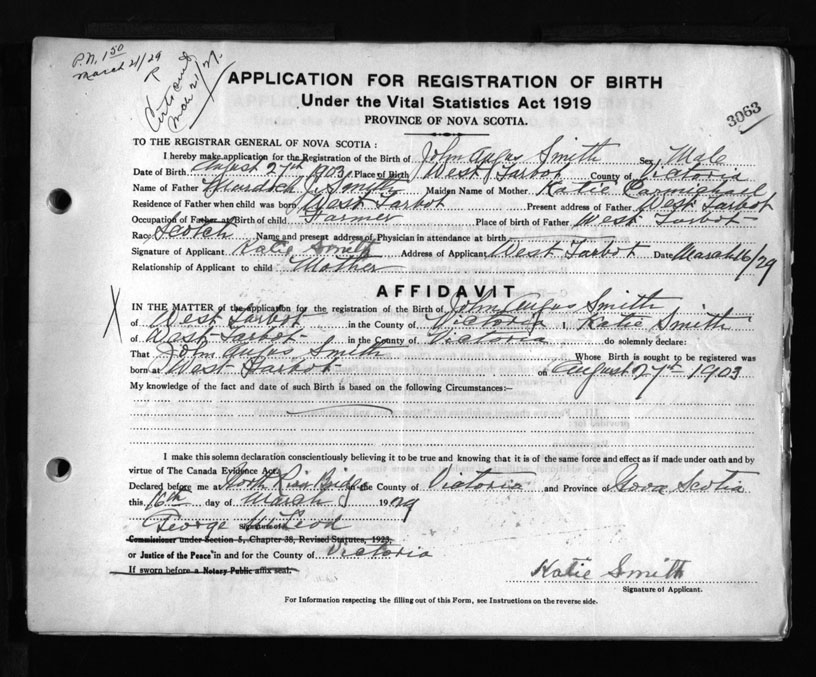 P.N. 1.50
March 21/29
R
Mch 21/29
APPLICATION FOR REGISTRATION OF BIRTH
Under the Vital Statistics Act 1919
3063
PROVINCE OF NOVA SCOTIA.
TO THE REGISTRAR GENERAL OF NOVA SCOTIA:
I hereby make application for the Registration of the Birth of John Angus Smith Sex Male
Date of Birth August 27th 1903 Place of Birth West Tarbot County of Victoria
Name of Father Murdoch J. Smith Maiden Name of Mother Katie Carmichael
Residence of Father when child was born West Tarbot Present address of Father West Tarbot
Occupation of Father at Birth of child Farmer Place of birth of Father West Tarbot
Race Scotch Name and present address of Physician in attendance at birth
Signature of Applicant Katie Smith Address of Applicant West Tarbot Date March 16/29
Relationship of Applicant to child Mother
AFFIDAVIT
X
IN THE MATTER of the application for the registration of the Birth of John Angus Smith
of West Tarbot in the County of Victoria I, Katie Smith
of West Tarbot in the County of Victoria do solemnly declare:
That John Angus Smith Whose Birth is sought to be registered was
born at West Tarbot on August 27th 1903
My knowledge of the fact and date of such Birth is based on the following Circumstances:—
I make this solemn declaration conscientiously believing it to be true and knowing that it is of the same force and effect as if made under oath and by
virtue of The Canada Evidence Act.
Declared before me at North River Bridge in the County of Victoria and Province of Nova Scotia
this 16th day of March 1929
George McLeod
Signature of
Commissioner under Section 5, Chapter 38, Revised Statutes, 1923,
or Justice of the Peace in and for the County of Victoria
If sworn before a Notary Public affix seal.
Katie Smith
Signature of Applicant.
For Information respecting the filling out of this Form, see Instructions on the reverse side.